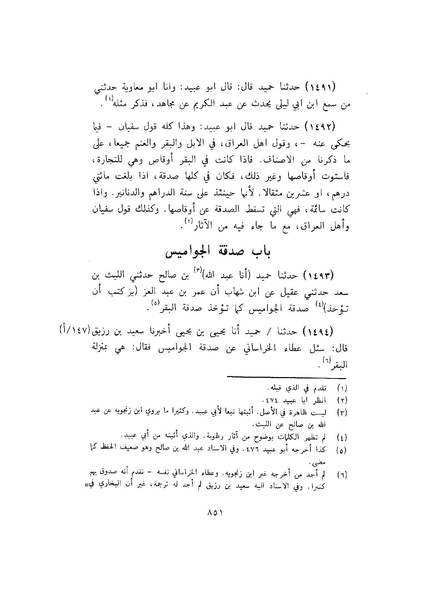 (١٤٩١) حدثنا حميد قال: قال ابو عبيد: وانا ابو معاوية حدثني
من سمع ابن ابي ليلى يحدث عن عبد الكريم عن مجاهد، فذكر مثله(١).
(١٤٩٢) حدثنا حميد قال ابو عبيد: وهذا كله قول سفيان - فيما
يحكى عنه -، وقول اهل العراق، في الابل والبقر والغنم جميعا، على
ما ذكرنا من الاصناف. فاذا كانت في البقر أوقاص وهي للتجارة،
فاستوت أوقاصها وغير ذلك، فكان في كلها صدقة، اذا بلغت مائتي
درهم، او عشرين مثقالا. لأنها حينئذ على سنة الدراهم والدنانير. واذا
كانت سائمة، فهي التي تسقط الصدقة عن أوقاصها. وكذلك قول سفيان
وأهل العراق، مع ما جاء فيه من الآثار(٢).
باب صدقة الجواميس
(١٤٩٣) حدثنا حميد (أنا عبد الله)(٣) بن صالح حدثني الليث بن
سعد حدثني عقيل عن ابن شهاب أن عمر بن عبد العز (يز كتب أن
تؤخذ)(٤) صدقة الجواميس كما تؤخذ صدقة البقر(٥).
(١٤٩٤) حدثنا / حميد أنا يحيى بن يحيى أخبرنا سعيد بن رزيق (١٤٧/أ)
قال: سئل عطاء الخراساني عن صدقة الجواميس فقال: هي بمنزلة
البقر(٦).
(١) تقدم في الذي قبله.
(٢) انظر ابا عبيد ٤٧٤.
(٣) ليست ظاهرة في الأصل. أثبتها تبعا لأبي عبيد. وكثيرا ما يروي ابن زنجويه عن عبد
الله بن صالح عن الليث.
(٤) لم تظهر الكلمات بوضوح من آثار رطوبة. والذي أثبته من أبي عبيد.
(٥) كذا أخرجه أبو عبيد ٤٧٦. وفي الاسناد عبد الله بن صالح وهو ضعيف الحفظ كما
مضى.
(٦) لم أجد من أخرجه غير ابن زنجويه. وعطاء الخراساني نفسه - تقدم أنه صدوق يهم
كثيرا. وفي الاسناد اليه سعيد بن رزيق لم أجد له ترجمة، غير أن البخاري في =
٨٥١